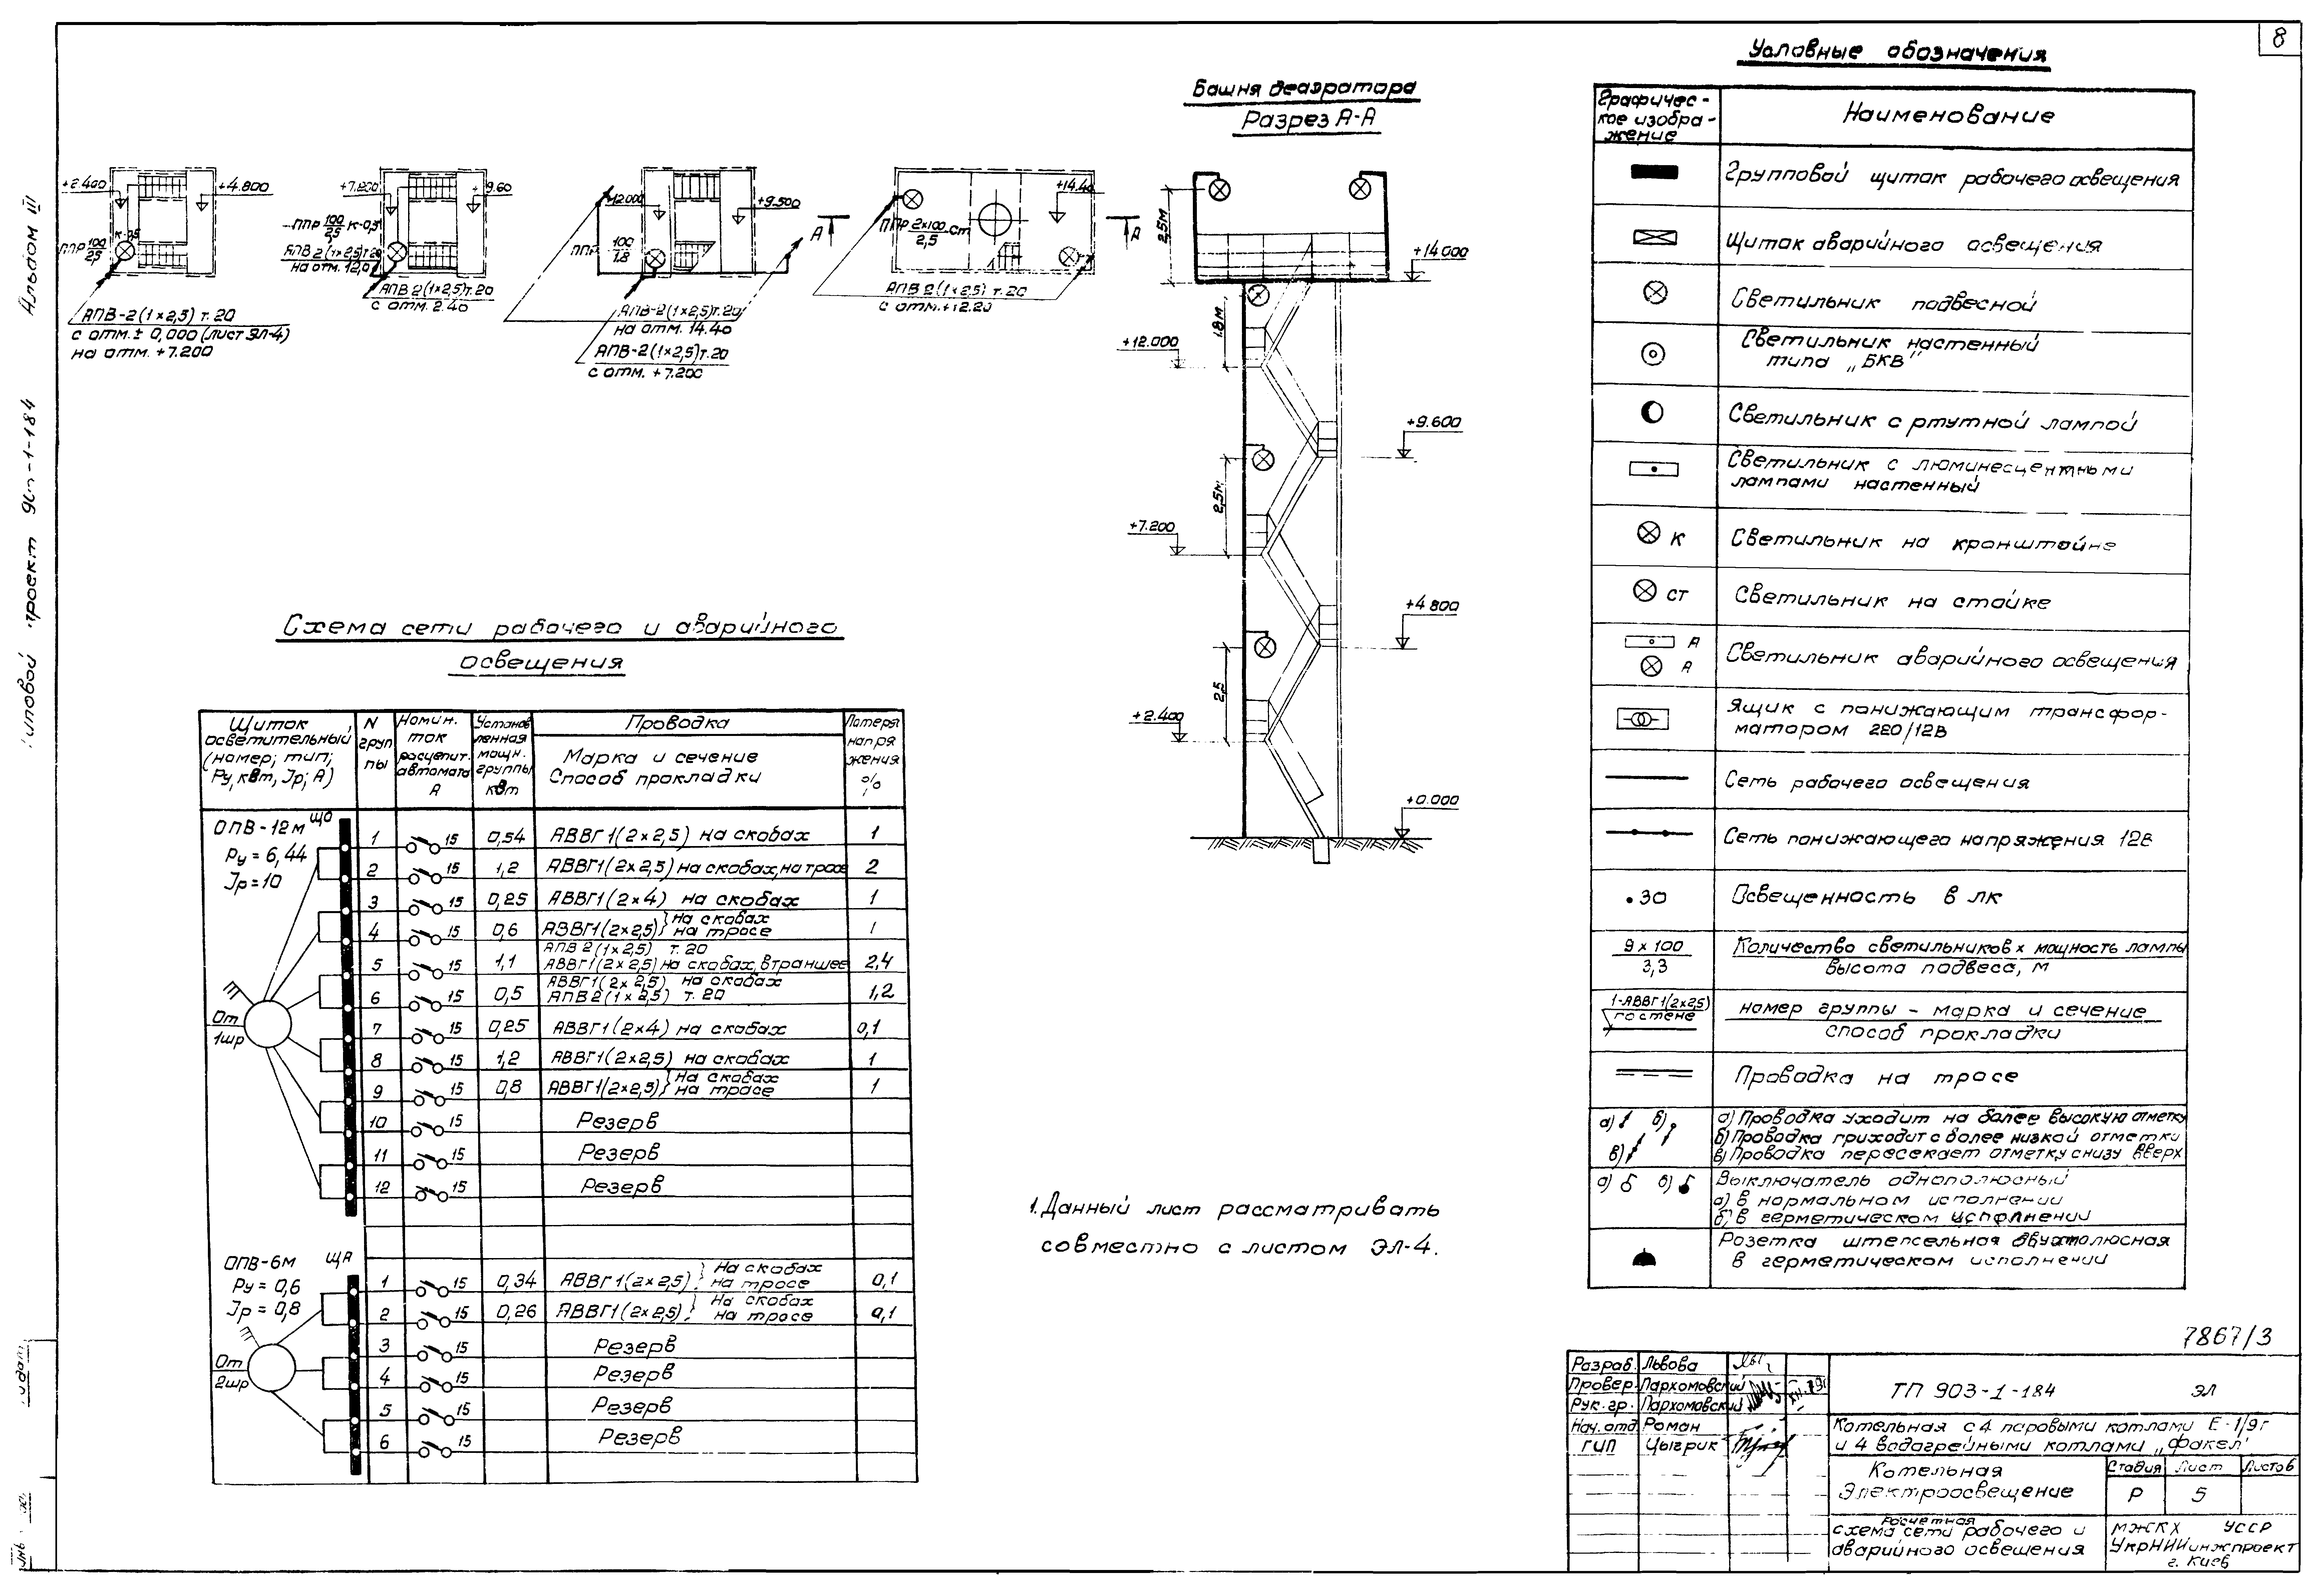 8
Альбом III
Типовой проект 903-1-184
+2.400
+4.800
ППР 100/2,5 К-0,5
АПВ-2(1×2,5) т.20
с отм. ± 0,000 (лист ЭЛ-4)
на отм. +7.200
+7.200
+9.60
ППР 100/2,5 К-0,5
АПВ 2(1×2,5) т.20
на отм. 12,0
АПВ 2(1×2,5) т.20
с отм. 2.40
12.000
+9.500
ППР 100/1,8
АПВ-2(1×2,5) т.20
на отм. 14.40
АПВ-2(1×2,5) т.20
с отм. +7.200
+14.40
ППР 2×100/2,5 ст
АПВ 2(1×2,5) т.20
с отм. +12.20
А
А
Башня деаэратора
Разрез А-А
2,5м
+14.000
1.8м
+12.000
+9.600
2,5м
+7.200
+4.800
2,5
+2.400
+0.000
Схема сети рабочего и аварийного
освещения
Щиток осветительный (номер; тип; Ру, квт, Jр; А)
N группы
Номин. ток расцепит. автомата А
Установленная мощн. группы квт
Проводка
Марка и сечение
Способ прокладки
Потеря напряжения %
ОПВ-12м ЩО
Ру = 6,44
Jр = 10
От 1шр
1 15 0,54 АВВГ1(2×2,5) на скобах 1
2 15 1,2 АВВГ1(2×2,5) на скобах, на тросе 2
3 15 0,25 АВВГ1(2×4) на скобах 1
4 15 0,6 АВВГ1(2×2,5) } на скобах на тросе 1
5 15 1,1 АПВ 2(1×2,5) т.20 АВВГ1(2×2,5) на скобах, в траншее 2,4
6 15 0,5 АВВГ1(2×2,5) на скобах АПВ2(1×2,5) т.20 1,2
7 15 0,25 АВВГ1(2×4) на скобах 0,1
8 15 1,2 АВВГ1(2×2,5) на скобах 1
9 15 0,8 АВВГ1(2×2,5) } на скобах на тросе 1
10 15 Резерв
11 15 Резерв
12 15 Резерв
ОПВ-6м ЩА
Ру = 0,6
Jр = 0,8
От 2шр
1 15 0,34 АВВГ1(2×2,5) } на скобах на тросе 0,1
2 15 0,26 АВВГ1(2×2,5) } на скобах на тросе 0,1
3 15 Резерв
4 15 Резерв
5 15 Резерв
6 15 Резерв
1. Данный лист рассматривать
совместно с листом ЭЛ-4.
Условные обозначения
Графическое изображение
Наименование
Групповой щиток рабочего освещения
Щиток аварийного освещения
Светильник подвесной
Светильник настенный
типа „БКВ"
Светильник с ртутной лампой
Светильник с люминесцентными
лампами настенный
К Светильник на кронштейне
СТ Светильник на стойке
А
А Светильник аварийного освещения
Ящик с понижающим трансфор-
матором 220/12В
Сеть рабочего освещения
Сеть понижающего напряжения 12в
.30 Освещенность в лк
9×100 Количество светильников × мощность лампы
3,3 Высота подвеса, м
1-АВВГ1(2×2,5) номер группы – марка и сечение
по стене способ прокладки
Проводка на тросе
а) б) а) Проводка уходит на более высокую отметку
б) Проводка приходит с более низкой отметки
в) в) Проводка пересекает отметку снизу вверх
а) б) Выключатель однополюсный
а) в нормальном исполнении
б) в герметическом исполнении
Розетка штепсельная двухполюсная
в герметическом исполнении
7867/3
Разраб. Львова
Провер. Пархомовский
Рук. гр. Пархомовский
Нач. отд Роман
ГИП Цыгрик
ТП 903-1-184 ЭЛ
Котельная с 4 паровыми котлами Е-1/9г
и 4 водогрейными котлами „Факел"
Котельная
Электроосвещение
Стадия Лист Листов
Р 5
Расчетная
схема сети рабочего и
аварийного освещения
МЖКХ УССР
УкрНИИинжпроект
г. Киев